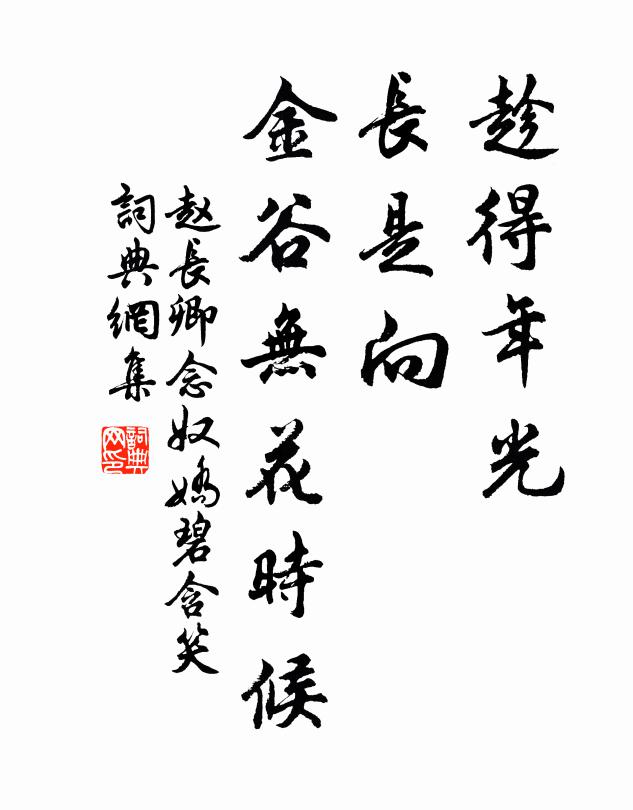 趁得年光
長是向
金谷無花時候
赵長卿念奴嬌碧含笑
詞典網集
詞典
网印